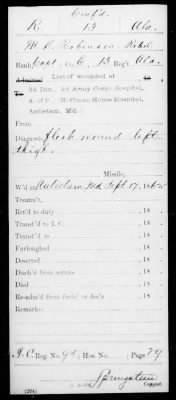 Conf'd.
R. 13 Ala.
M. D. Robinson Rebel
Rank, Capt; Co. C, 13 Reg't Ala.
Admitted List of wounded at
2d Div., 2d Army Corps Hospital,
A. of P., (Hoffman House Hospital,
Antietam, Md.)
From
Diagnosis, flesh wound left
thigh.
Missile,
W'd at Antietam Md Sept 17, 1862
Treatm't,
Ret'd to duty , 18 .
Transf'd to I. C. , 18 .
Transf'd to , 18 .
Furloughed , 18 .
Deserted , 18 .
Disch'd from service , 18 .
Died , 18 .
Re-adm'd from furlo' or des'n , 18 .
Remarks:
A. C. Reg. No. ; Hos. No. ; Page 29
Springsteen
Copyist.
(294)